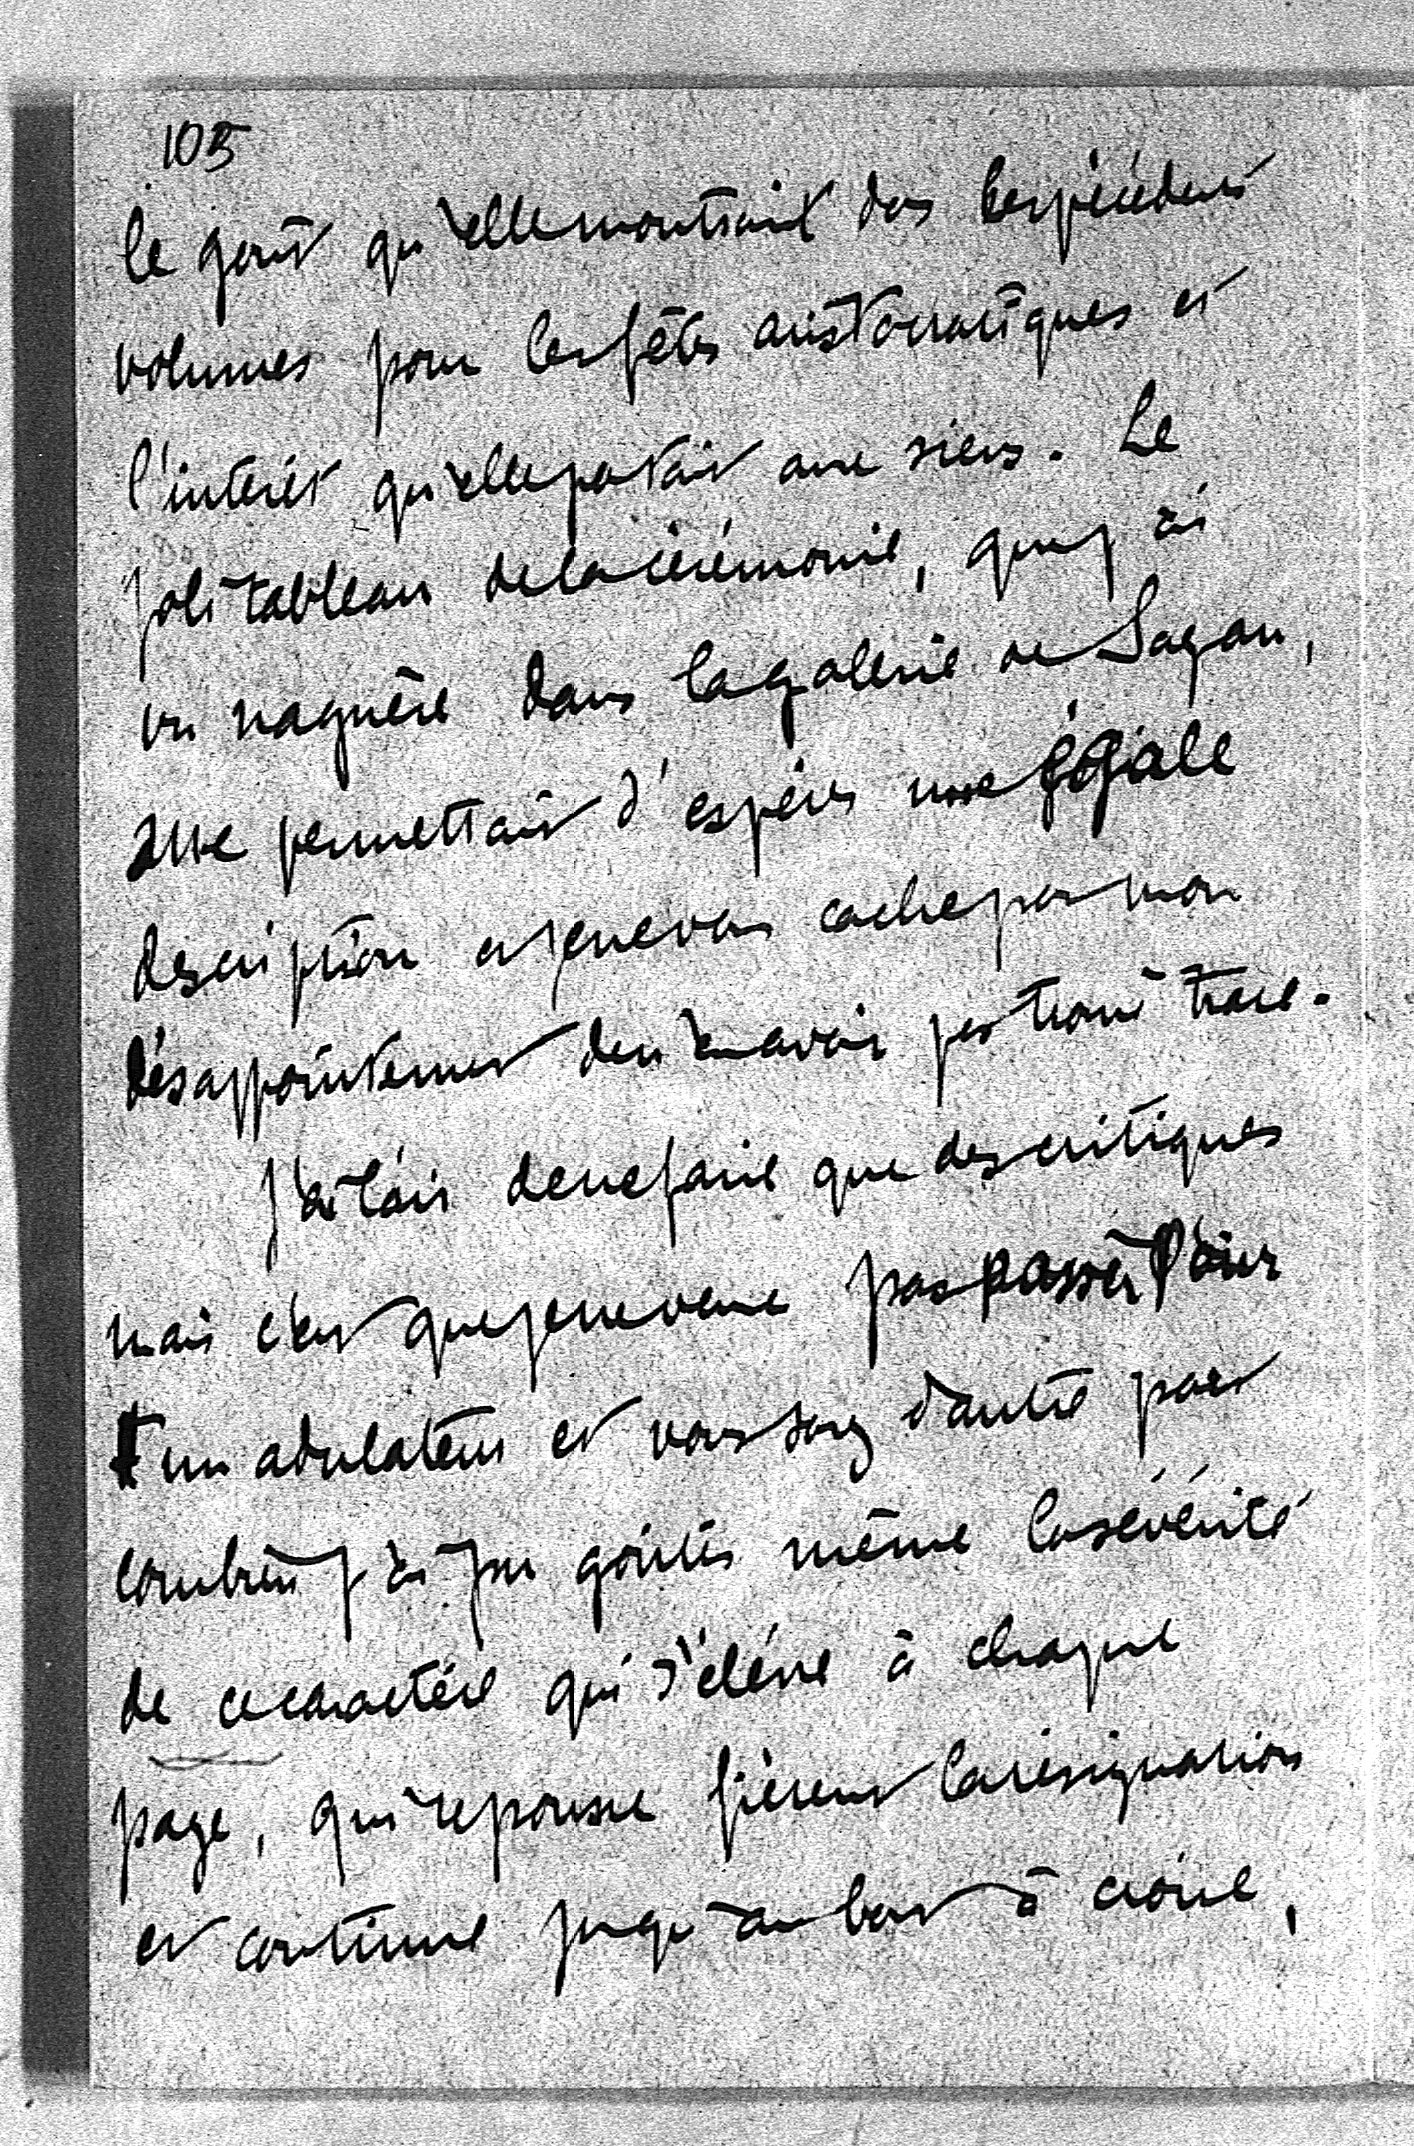 105
le goût qu'elle montrait dans les précédents
volumes pour les fêtes aristocratiques et
l'intérêt qu'elle portait aux siens. Le
joli tableau de la cérémonie, que j'ai
vu naguère dans la galerie de Sagan,
me permettait d'espérer une égale
description et je ne vous cache pas mon
désappointement de n'en avoir pas trouvé trace.
J'ai l'air de ne faire que des critiques
mais c'est que je ne veux pas passer pour
un adulateur et vous savez d'autre part
combien j'ai pu goûter même la sévérité
de ce caractère qui s'élève à chaque
page, qui repousse fièrement la résignation
et continue jusqu'au bout à croire,